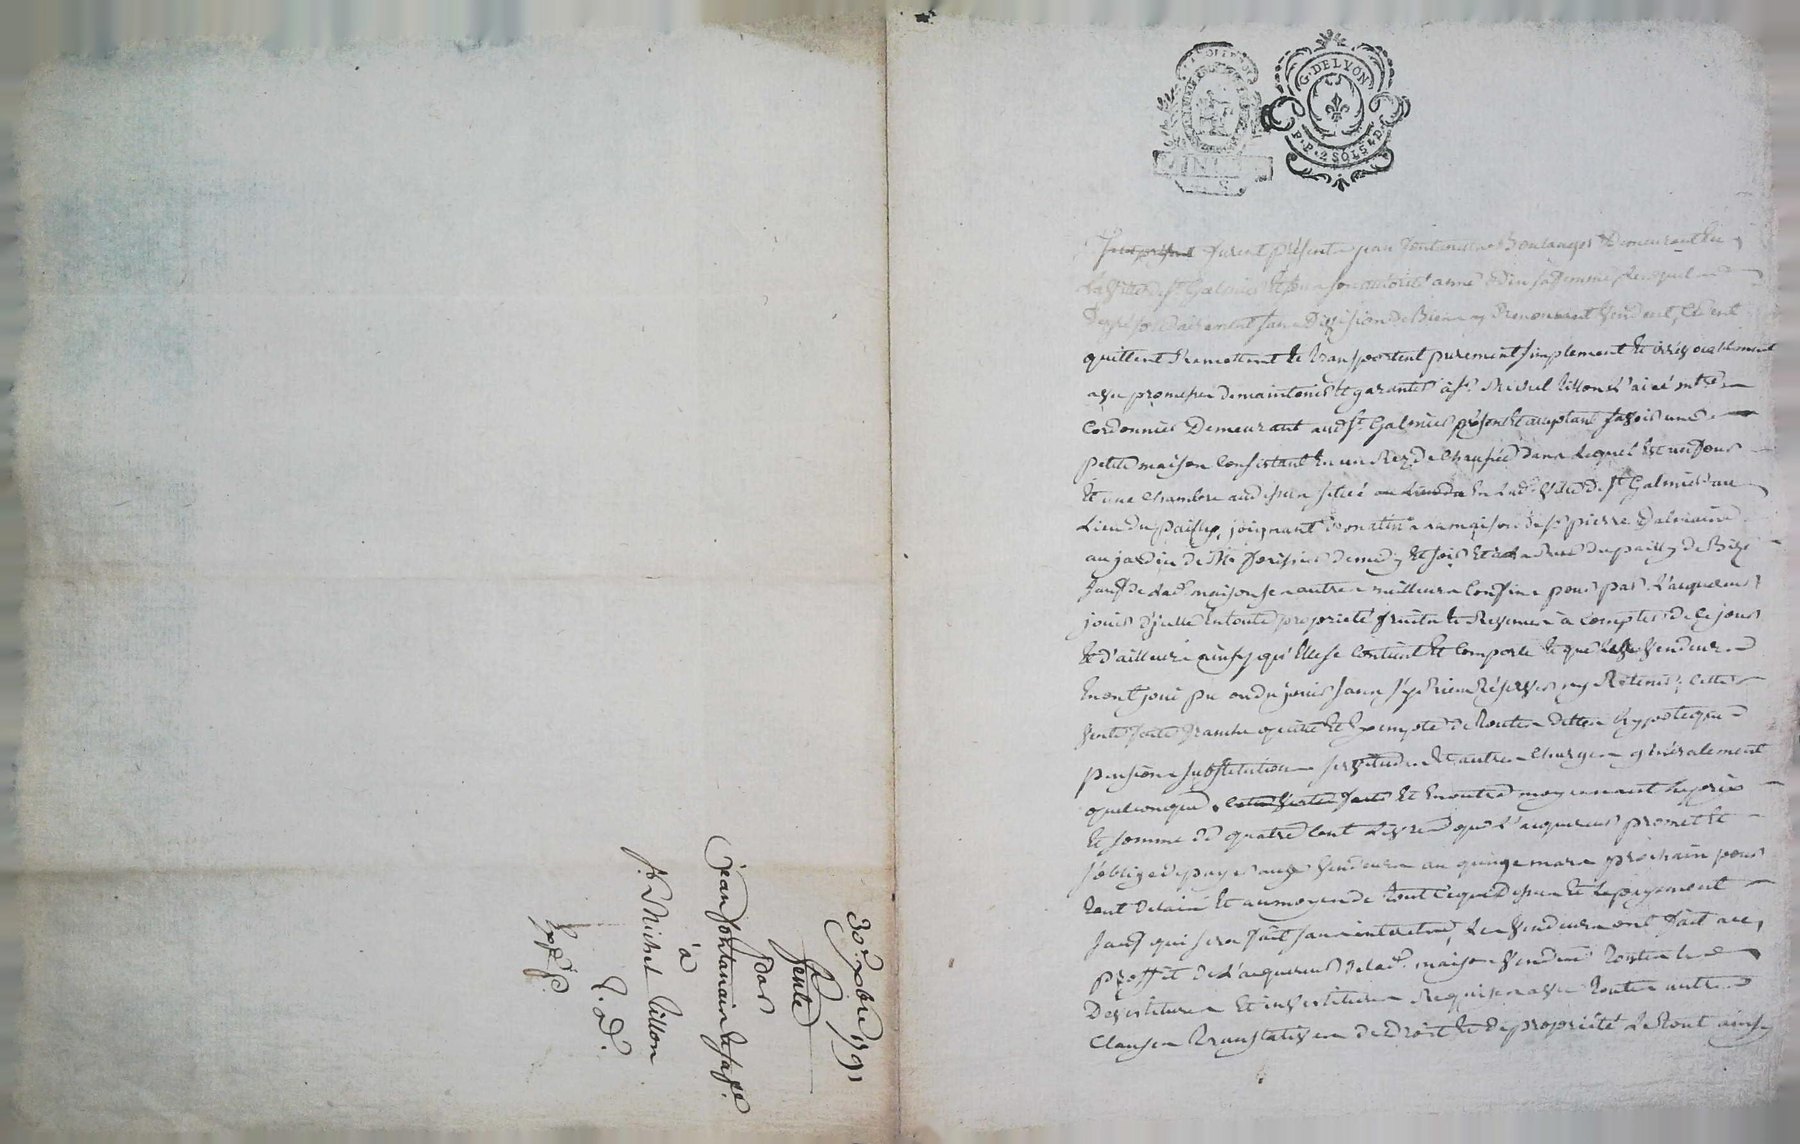 30 xbre 1791
Vente
par
jean fontanain & sa fe
à
st. Michel Villon
G. DE LYON
P. P. 2 SOLS 4 D.
furent présents jean Boulanger Demeurant En
La ville de st. Galmier Et son autorité anne sa femme Lesquels
solidairement sans Division de Biens ny Renoncant Vendent, Cedent
quittent Remettent Et transportent purement simplement Et irrévocablement
avec promesse de maintenir Et garantir à st. Michel Villon L'ainé mtre.
Cordonnier Demeurant aud. st. Galmier présent Et acceptant savoir une
petite maison Consistant En un Rez de Chaussée dans Lequel Est un four
Et une Chambre au dessus située En Lad. Ville de st. Galmier au
Lieu du joignant de matin La maison de sr. pierre
au jardin de Mr. de midy Et soir Et La Rue du de Bize
sauf de Lad. maison ses autres meilleurs Confins pour par L'acquereur
jouir d'icelle En toute propriété fruits Et Revenus à Compter de Ce jour
Et d'ailleurs ainsy qu'Elle se Contient Et Comporte Et que Les Vendeurs
En ont joui pu ou du jouir sans s'y Rien Réserver ny Retenir, Cette
Vente faite franche quitte Et Exempte de Toutes dettes hypoteques
pensions substitutions servitudes Et autres Charges généralement
quelconques, Et En outre moyennant Le prix
Et somme de quatre Cent Livres que L'acquereur promet Et
s'oblige de payer aux Vendeurs au quinze mars prochain pour
tout Délai Et au moyen de tout Ce que Dessus Et Le payement
sauf qui sera fait sans interêts, Les Vendeurs ont fait au
proffit de L'acquereur de Lad. maison Vendue toutes Les
Devestitures Et investitures Requises avec toutes autres
Clauses translatives de Droit Et de propriété Le tout ainsy